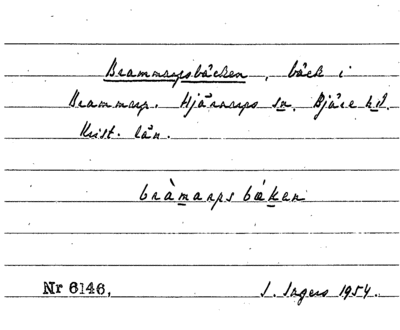 Brammarpsbäcken, bäck i
Brammarp. Hjärnarps sn. Bjäre hd.
Krist. län.
bràmarps bákan
Nr 6146. I. Ingers 1954.